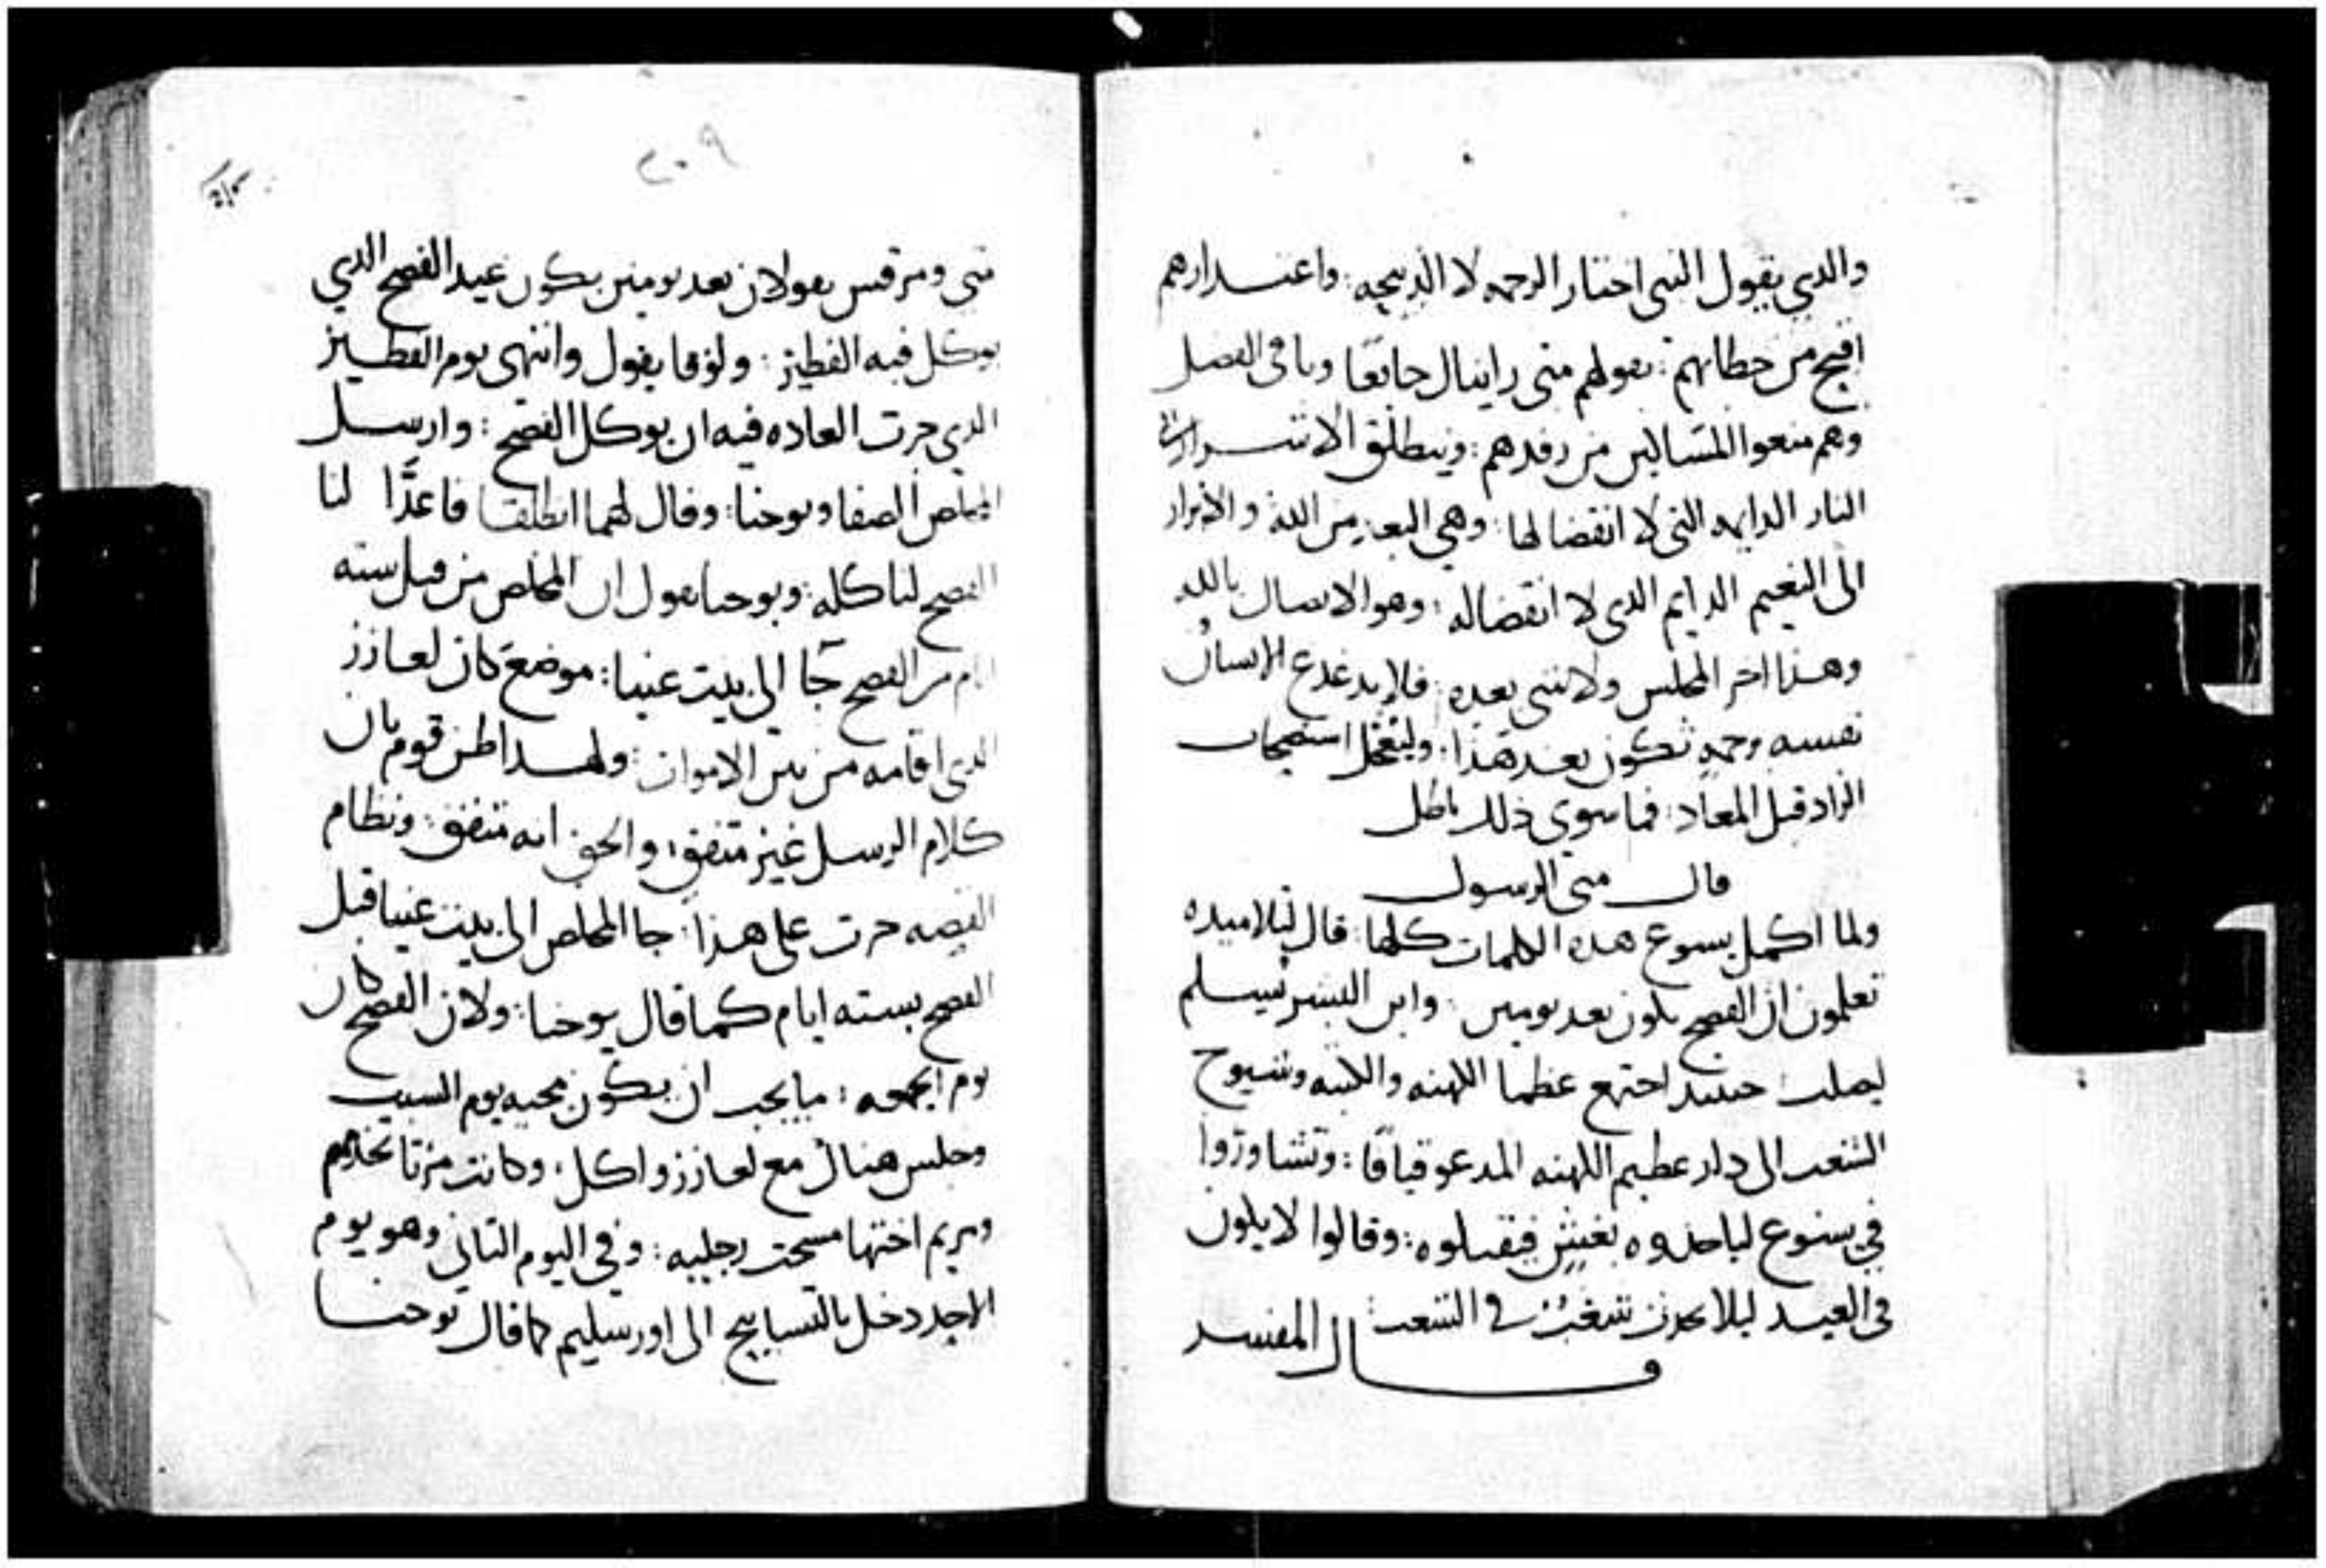 والدي يقول انني اختار الرحمه لا الذبيحه: واعتدارهم
اقبح من خطاياهم: بقولهم متى رايناك جايعًا وباقي الفصل
وهم منعوا المساكين من رفدهم: وينطلق الاشرار الى
النار الدايمه التي لا انقضا لها: وهي البعد من الله والابرار
الى النعيم الدايم الذي لا انقضا له: وهو الاتصال بالله
وهذا اخر المجلس ولا شي بعده: فلا يدغدغ الانسان
نفسه برحمه تكون بعد هذا: وليتعجل استصحاب
الزاد قبل المعاد: فما سوى ذلك باطل
قال متى الرسول
ولما اكمل يسوع هذه الكلمات كلها: قال لتلاميده
تعلمون ان الفصح يكون بعد يومين: وابن البشر يسلم
ليصلب: حينيد اجتمع عظما الكهنه والكتبه وشيوخ
الشعب الى دار عظيم الكهنه المدعو قيافا: وتشاوروا
في يسوع لياخدوه بغش فيقتلوه: وقالوا لا يكون
في العيد ليلا يحدث شغب في الشعب:
قال المفسر
٢٠٩
متى ومرقس يقولان بعد يومين يكون عيد الفصح الذي
يوكل فيه الفطير: ولوقا يقول وانتهى يوم الفطير
الذي جرت العاده فيه ان يوكل الفصح: وارسل
المخلص الصفا ويوحنا: وقال لهما انطلقا فاعدَّا لنا
الفصح لناكله: ويوحنا يقول ان المخلص من قبل سته
ايام من الفصح جآ الى بيت عنيا: موضع كان لعازر
الذي اقامه من بين الاموات: ولهذا ظن قوم بان
كلام الرسل غير متفق: والحق انه متفق: ونظام
القصه جرت على هذا: جا المخلص الى بيت عنيا قبل
الفصح بسته ايام كما قال يوحنا: ولان الفصح كان
يوم الجمعه: ما يجب ان يكون مجيه يوم السبت
وجلس هناك مع لعازر واكل: وكانت مرتا تخدمهم
ومريم اختها مسحت رجليه: وفي اليوم التاني وهو يوم
الاحد دخل بالتسابيح الى اورشليم كما قال يوحنا